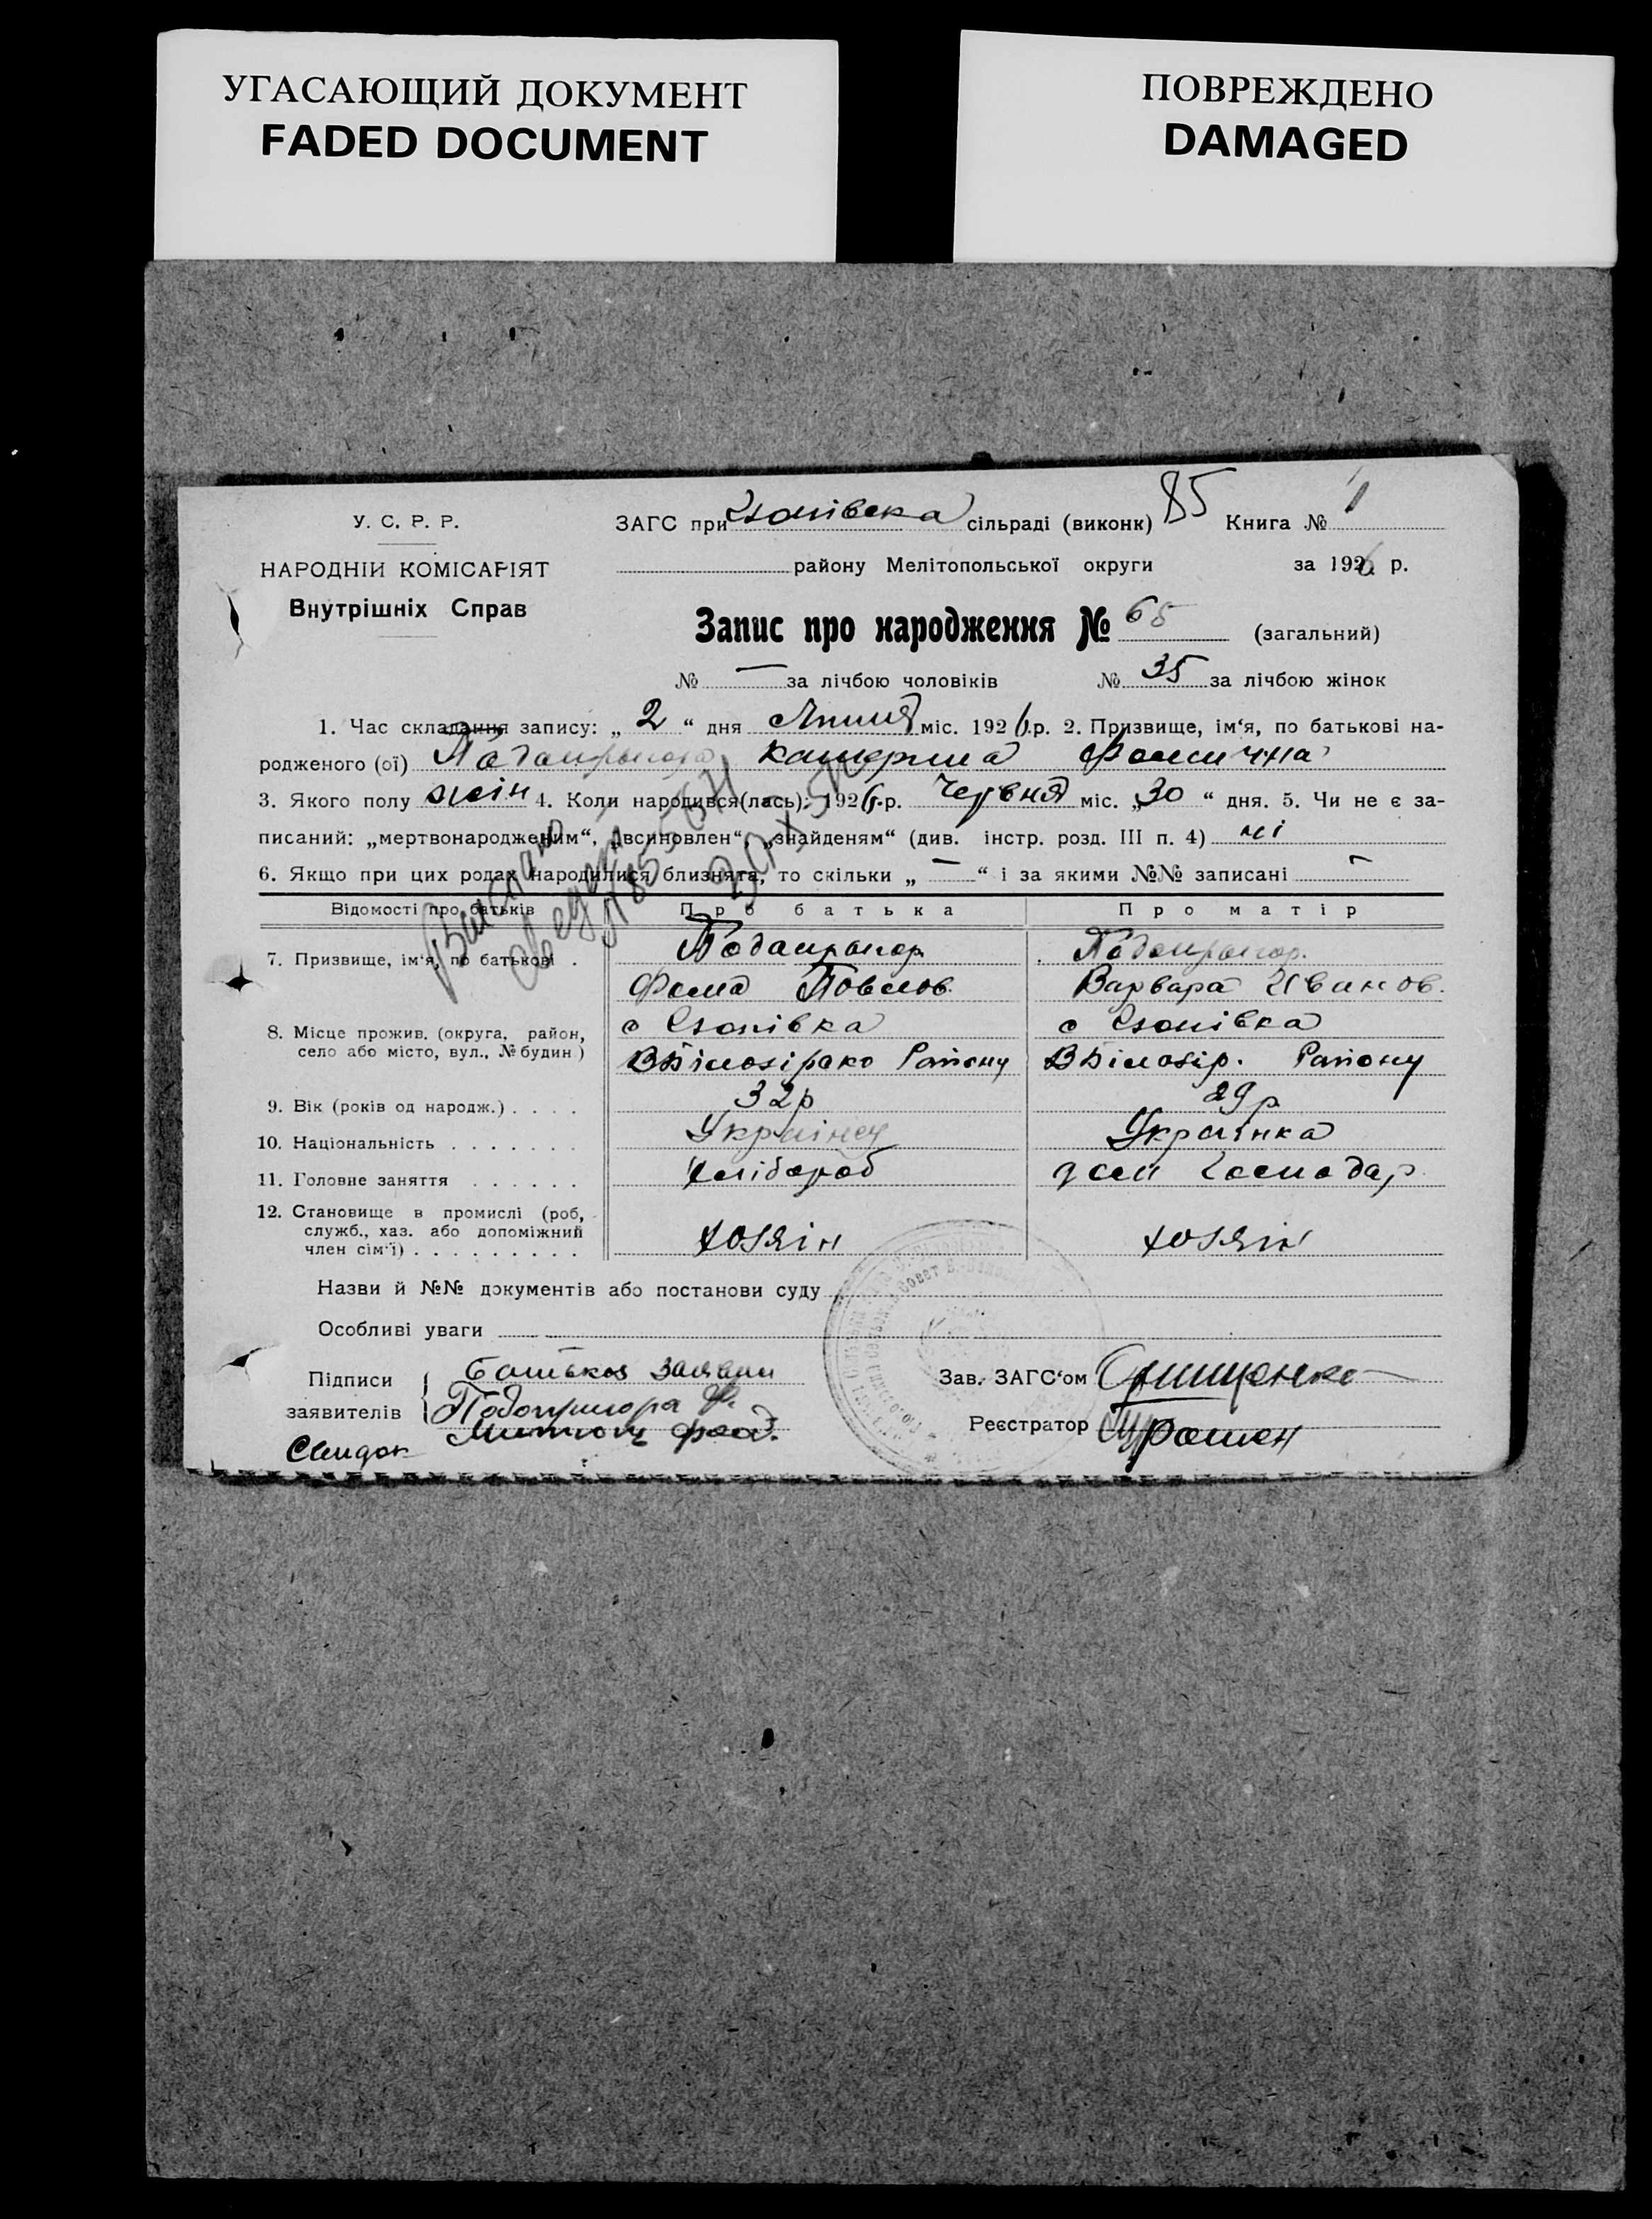 УГАСАЮЩИЙ ДОКУМЕНТ
FADED DOCUMENT
ПОВРЕЖДЕНО
DAMAGED
У. С. Р. Р.
НАРОДНІЙ КОМІСАРІЯТ
Внутрішніх Справ
ЗАГС при сільраді (виконк) 85 Книга № 1
району Мелітопольської округи за 1926 р.
Запис про народження № 65 (загальний)
№ — за лічбою чоловіків № 35 за лічбою жінок
1. Час складання запису: „ 2 “ дня Липня міс. 1926 р. 2. Призвище, ім‘я, по батькові на-
родженого (ої) Катерина Фомична
3. Якого полу жін 4. Коли народився(лась): 1926 р. Червня міс. „30 “ дня. 5. Чи не є за-
писаний: „мертвонародженим“, „всиновлен“, „знайденям“ (див. інстр. розд. III п. 4) ні
6. Якщо при цих родах народилися близнята, то скільки „ — “ і за якими №№ записані —
Відомості про батьків Про батька Про матір
7. Призвище, ім‘я, по батькові .
Фома Павлов. Варвара Иванов.
8. Місце прожив. (округа, район,
село або місто, вул., № будин)
с с
Району Району
9. Вік (років од народж.) . . . . 32р 29р
10. Національність . . . . . . . Українец Українка
11. Головне заняття . . . . . . Хлібороб дом господар
12. Становище в промислі (роб,
служб., хаз. або допоміжний
член сім‘ї) . . . . . . . . . хозяін хозяін
Назви й №№ документів або постанови суду
Особливі уваги
Підписи
заявителів
Подопригора Ф.
Зав. ЗАГС‘ом
Реєстратор